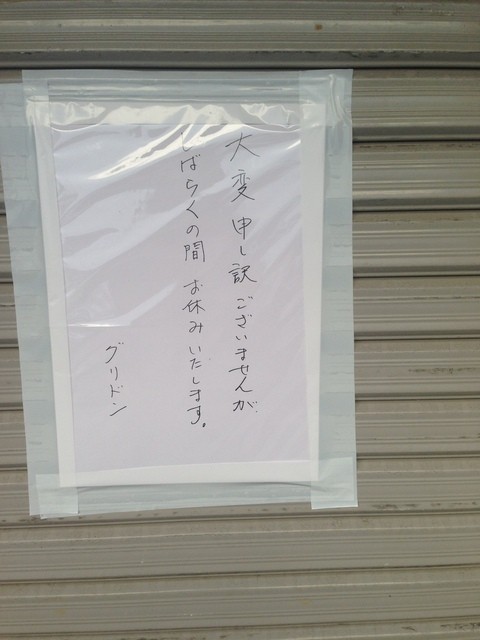 大変申し訳ございませんが
しばらくの間 お休みいたします。
グリドン